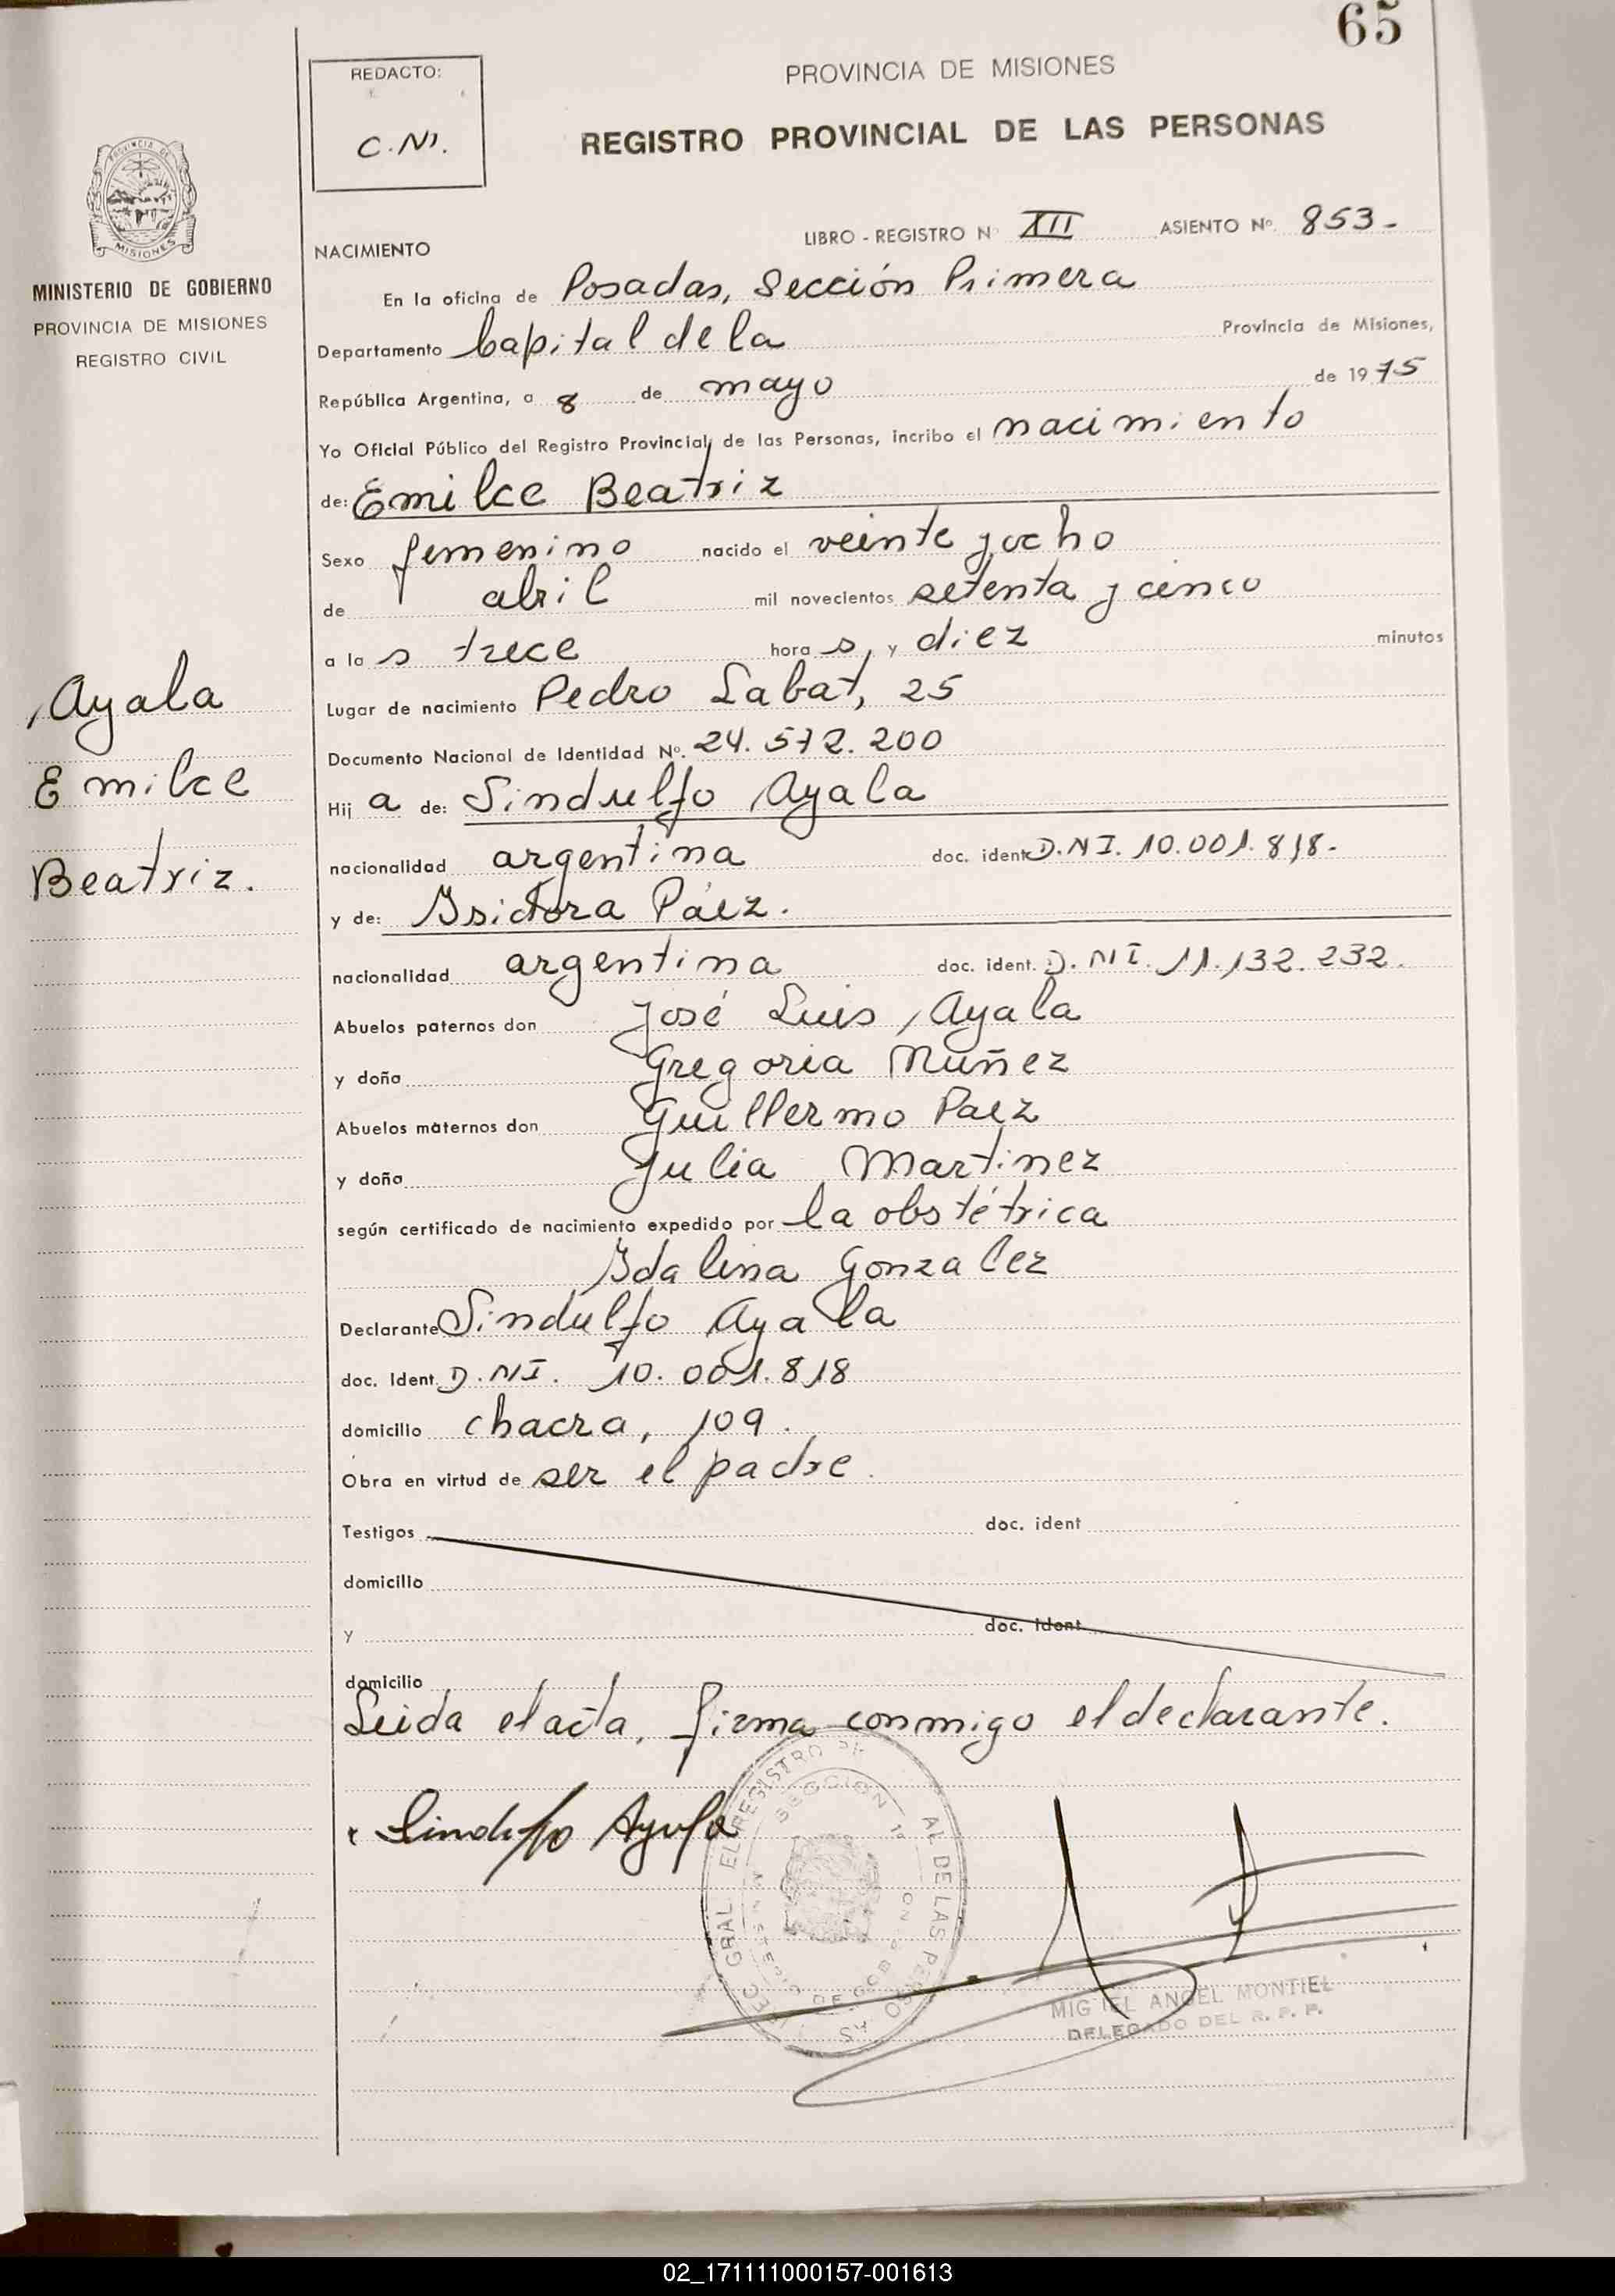 65
REDACTO:
C.N.
PROVINCIA DE MISIONES
REGISTRO PROVINCIAL DE LAS PERSONAS
PROVINCIA DE
MISIONES
MINISTERIO DE GOBIERNO
PROVINCIA DE MISIONES
REGISTRO CIVIL
NACIMIENTO LIBRO - REGISTRO N° XII ASIENTO Nº. 853-
En la oficina de Posadas, Sección Primera
Departamento Capital de la Provincia de Misiones,
República Argentina, a 8 de mayo de 1975
Yo Oficial Público del Registro Provincial de las Personas, incribo el nacimiento
de: Emilce Beatriz
Sexo femenino nacido el veinte y ocho
de abril mil novecientos setenta y cinco
a la s trece hora s y diez minutos
Lugar de nacimiento Pedro Labat, 25
Documento Nacional de Identidad Nº. 24.572.200
Hij a de: Sindulfo Ayala
nacionalidad argentina doc. ident. D.N.I. 10.001.818-
y de: Isidora Páez.
nacionalidad argentina doc. ident. D.NI. 11.132.232.
Abuelos paternos don José Luis Ayala
y doña Gregoria Nuñez
Abuelos maternos don Guillermo Paez
y doña Julia Martinez
según certificado de nacimiento expedido por la obstétrica
Idalina Gonzalez
Declarante Sindulfo Ayala
doc. Ident. D.NI. 10.001.818
domicilio chacra, 109.
Obra en virtud de ser el padre.
Testigos doc. ident
domicilio
y doc. ident
domicilio
Leida el acta, firma conmigo el declarante.
Ayala
Emilce
Beatriz.
Sindulfo Ayala
SECCION 1ª
MIGUEL ANGEL MONTIEL
DELEGADO DEL R. P. P.
02_171111000157-001613